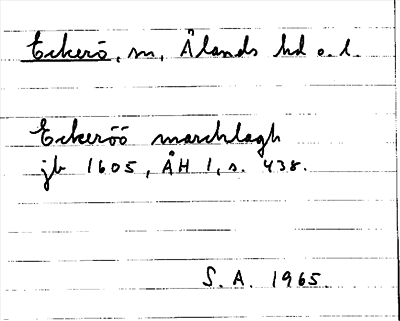 Eckerö, sn, Ålands hd o. l.
Eckeröö marcklagh
jb 1605, ÅH 1, s. 438.
S. A. 1965